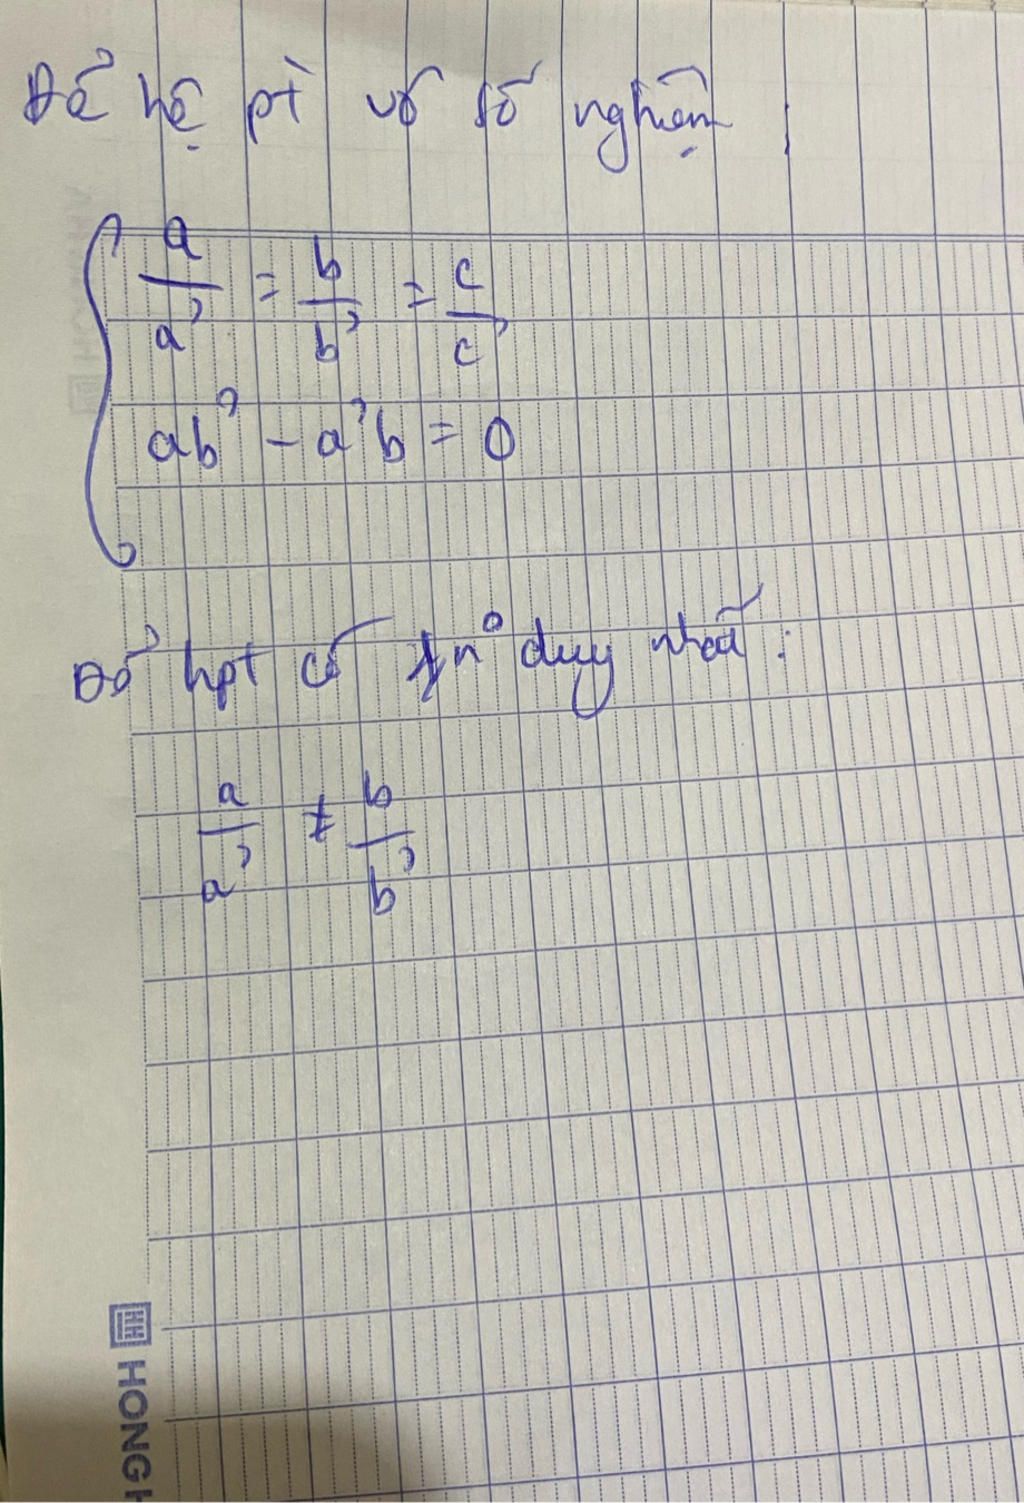 Để hệ pt vô số nghiệm
a/a' = b/b' = c/c'
ab' - a'b = 0
Để hpt có 1 nº duy nhất :
a/a' ≠ b/b'
HONG